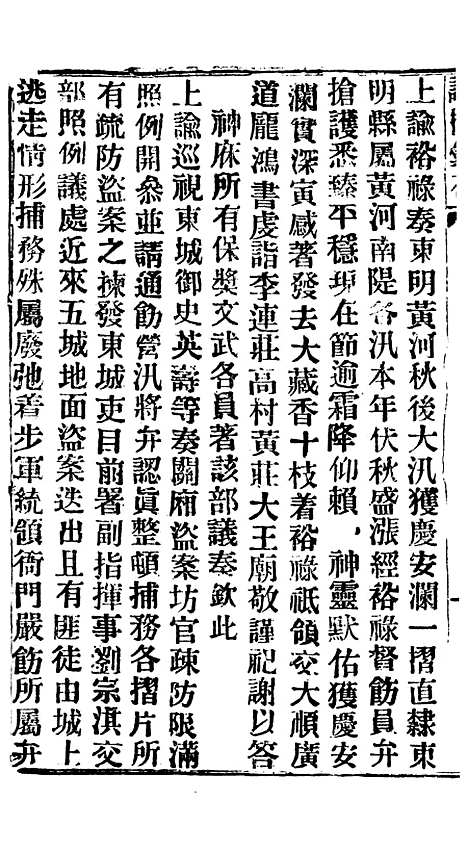 上諭裕祿奏東明黃河秋後大汛獲慶安瀾一摺直隸東
明縣屬黃河南隄各汛本年伏秋盛漲經裕祿督飭員弁
搶護悉臻平穩現在節逾霜降仰賴神靈默佑獲慶安
瀾實深寅感著發去大藏香十枝着裕祿祇領交大順廣
道龐鴻書虔詣李連莊高村黃莊大王廟敬謹祀謝以答
神庥所有保獎文武各員著該部議奏欽此
上諭巡視東城御史英壽等奏關廂盜案坊官疎防限滿
照例開叅並請通飭營汛將弁認眞整頓捕務各摺片所
有疏防盜案之揀發東城吏目前署副指揮事劉宗淇交
部照例議處近來五城地面盜案迭出且有匪徒由城上
逃走情形捕務殊屬廢弛着步軍統領衙門嚴飭所屬弁